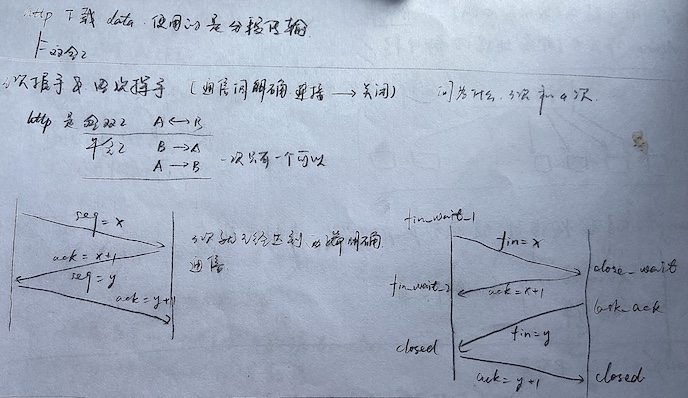 http 下载 data. 使用的是分段传输
全双工
三次握手 & 四次挥手 (通信间明确连接 → 关闭) 问为什么 三次和4次.
http 是 全双工 A ↔ B
半双工 B → A
A → B 一次只有一个可以
seq = x
ack = x+1
seq = y
ack = y+1
三次就已经达到 明确
通信
fin_wait_1
fin = x
close_wait
fin_wait_2
ack = x+1
last_ack
fin = y
closed
ack = y+1
closed